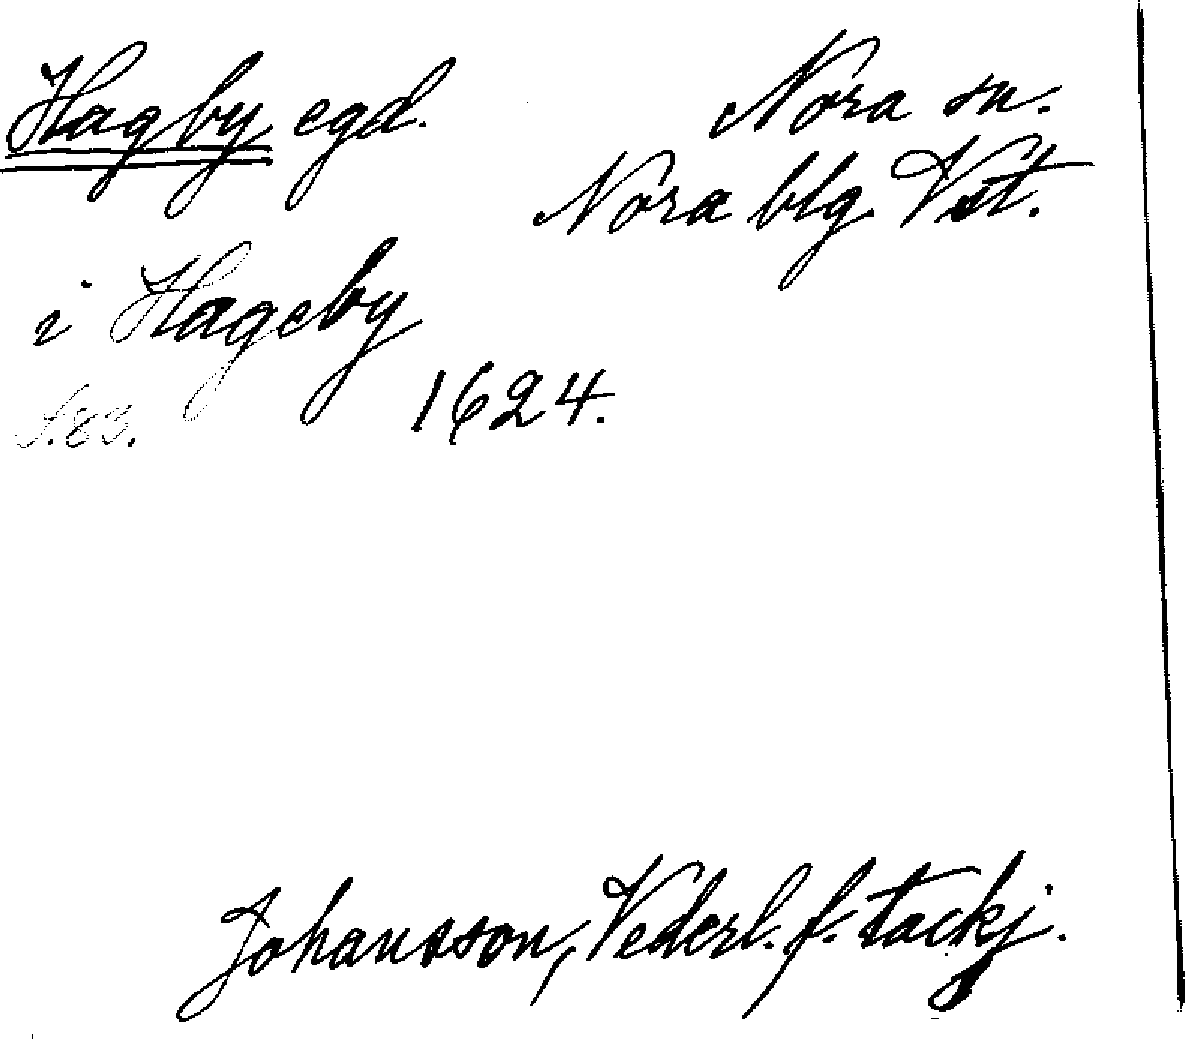 Hagby egd. Nora sn.
Nora blg. Vst.
i Hageby
1624.
S. 83.
Johansson, Vederl. f. tackj.